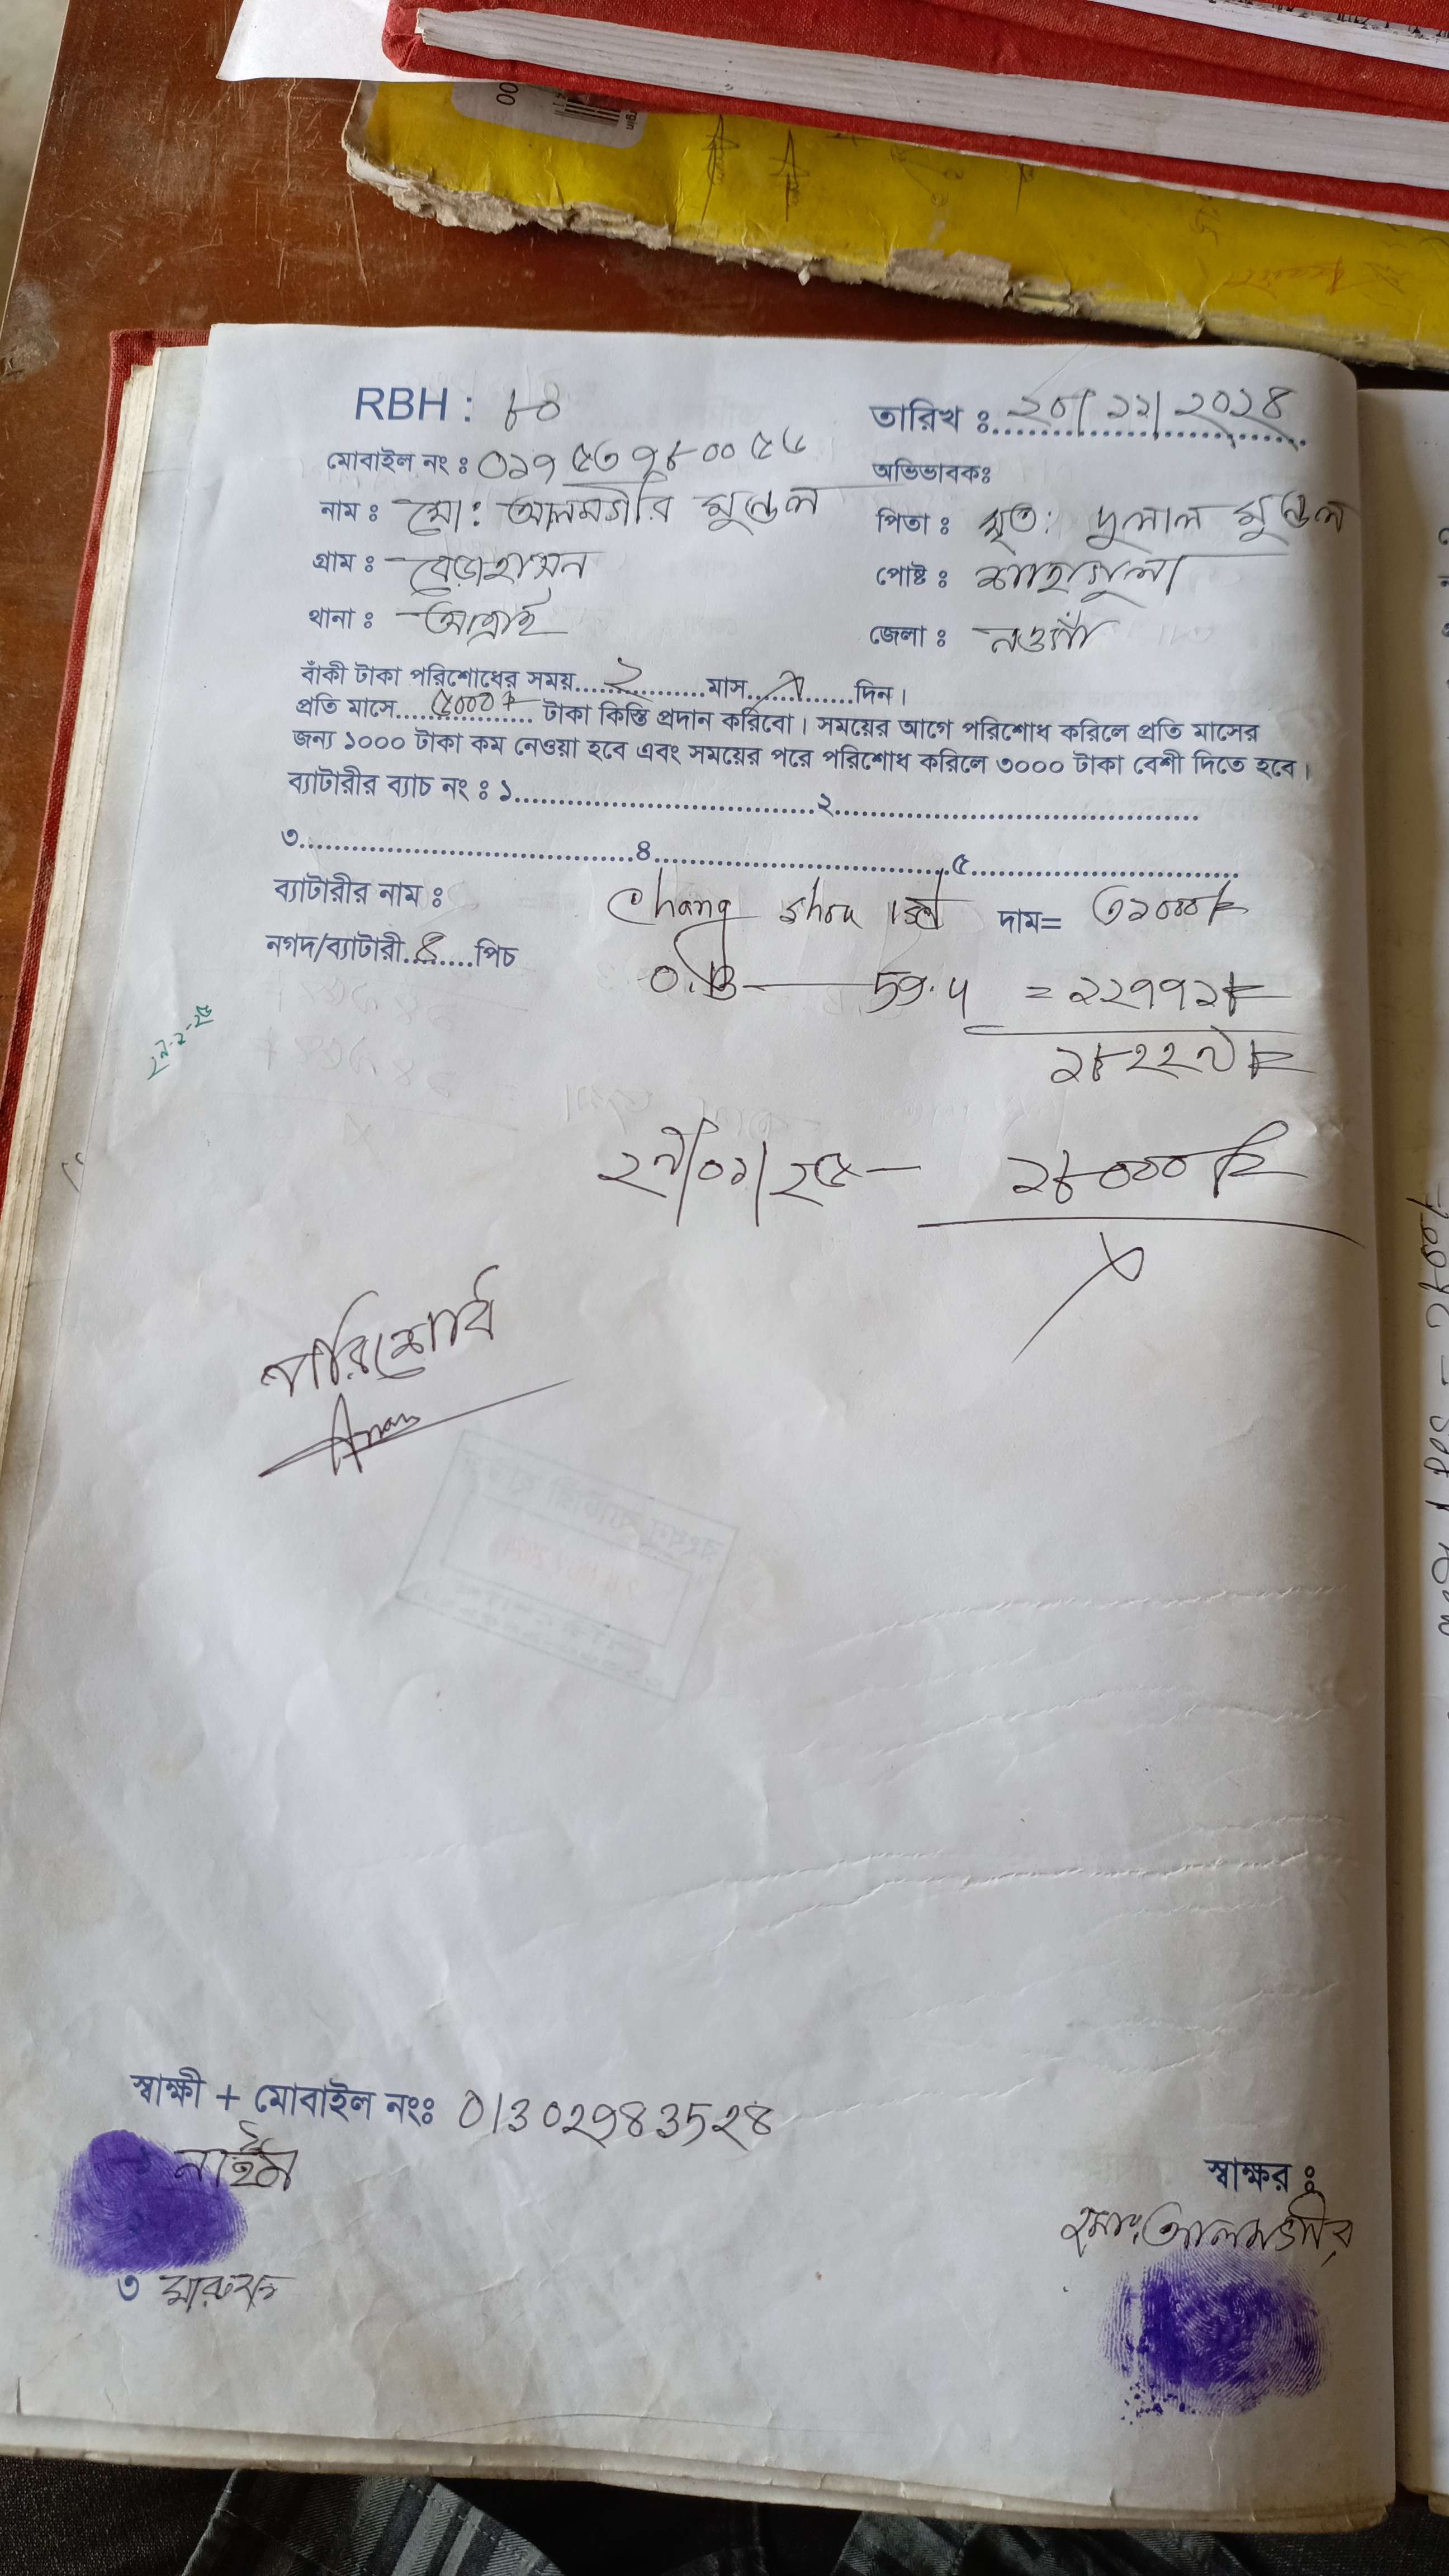 RBH : ৮৪
তারিখ ঃ ২৫/১১/২০২৪
মোবাইল নং ঃ ০১৭৫৩৭৮০০৫৬
অভিভাবকঃ
নাম ঃ মো: আলমগীর মন্ডল
পিতা ঃ মৃত: দুলাল মন্ডল
গ্রাম ঃ
পোষ্ট ঃ শাহাগুলা
থানা ঃ আত্রাই
জেলা ঃ নওগাঁ
বাঁকী টাকা পরিশোধের সময়....২....মাস....দিন।
প্রতি মাসে....৫০০০৳.... টাকা কিস্তি প্রদান করিবো। সময়ের আগে পরিশোধ করিলে প্রতি মাসের
জন্য ১০০০ টাকা কম নেওয়া হবে এবং সময়ের পরে পরিশোধ করিলে ৩০০০ টাকা বেশী দিতে হবে।
ব্যাটারীর ব্যাচ নং ঃ ১....২....
৩....৪....৫....
ব্যাটারীর নাম ঃ Chang shou দাম= ৩১০০০৳
নগদ/ব্যাটারী..৪..পিচ
59.5 = ১২৭৭১৳
১৮২২৯৳
২৯/০১/২৫ — ১৮০০০
পরিশোধ
স্বাক্ষী + মোবাইল নংঃ 01302983528
নাঈম
স্বাক্ষর ঃ
মোঃ আলমগীর
৩ মারুফ